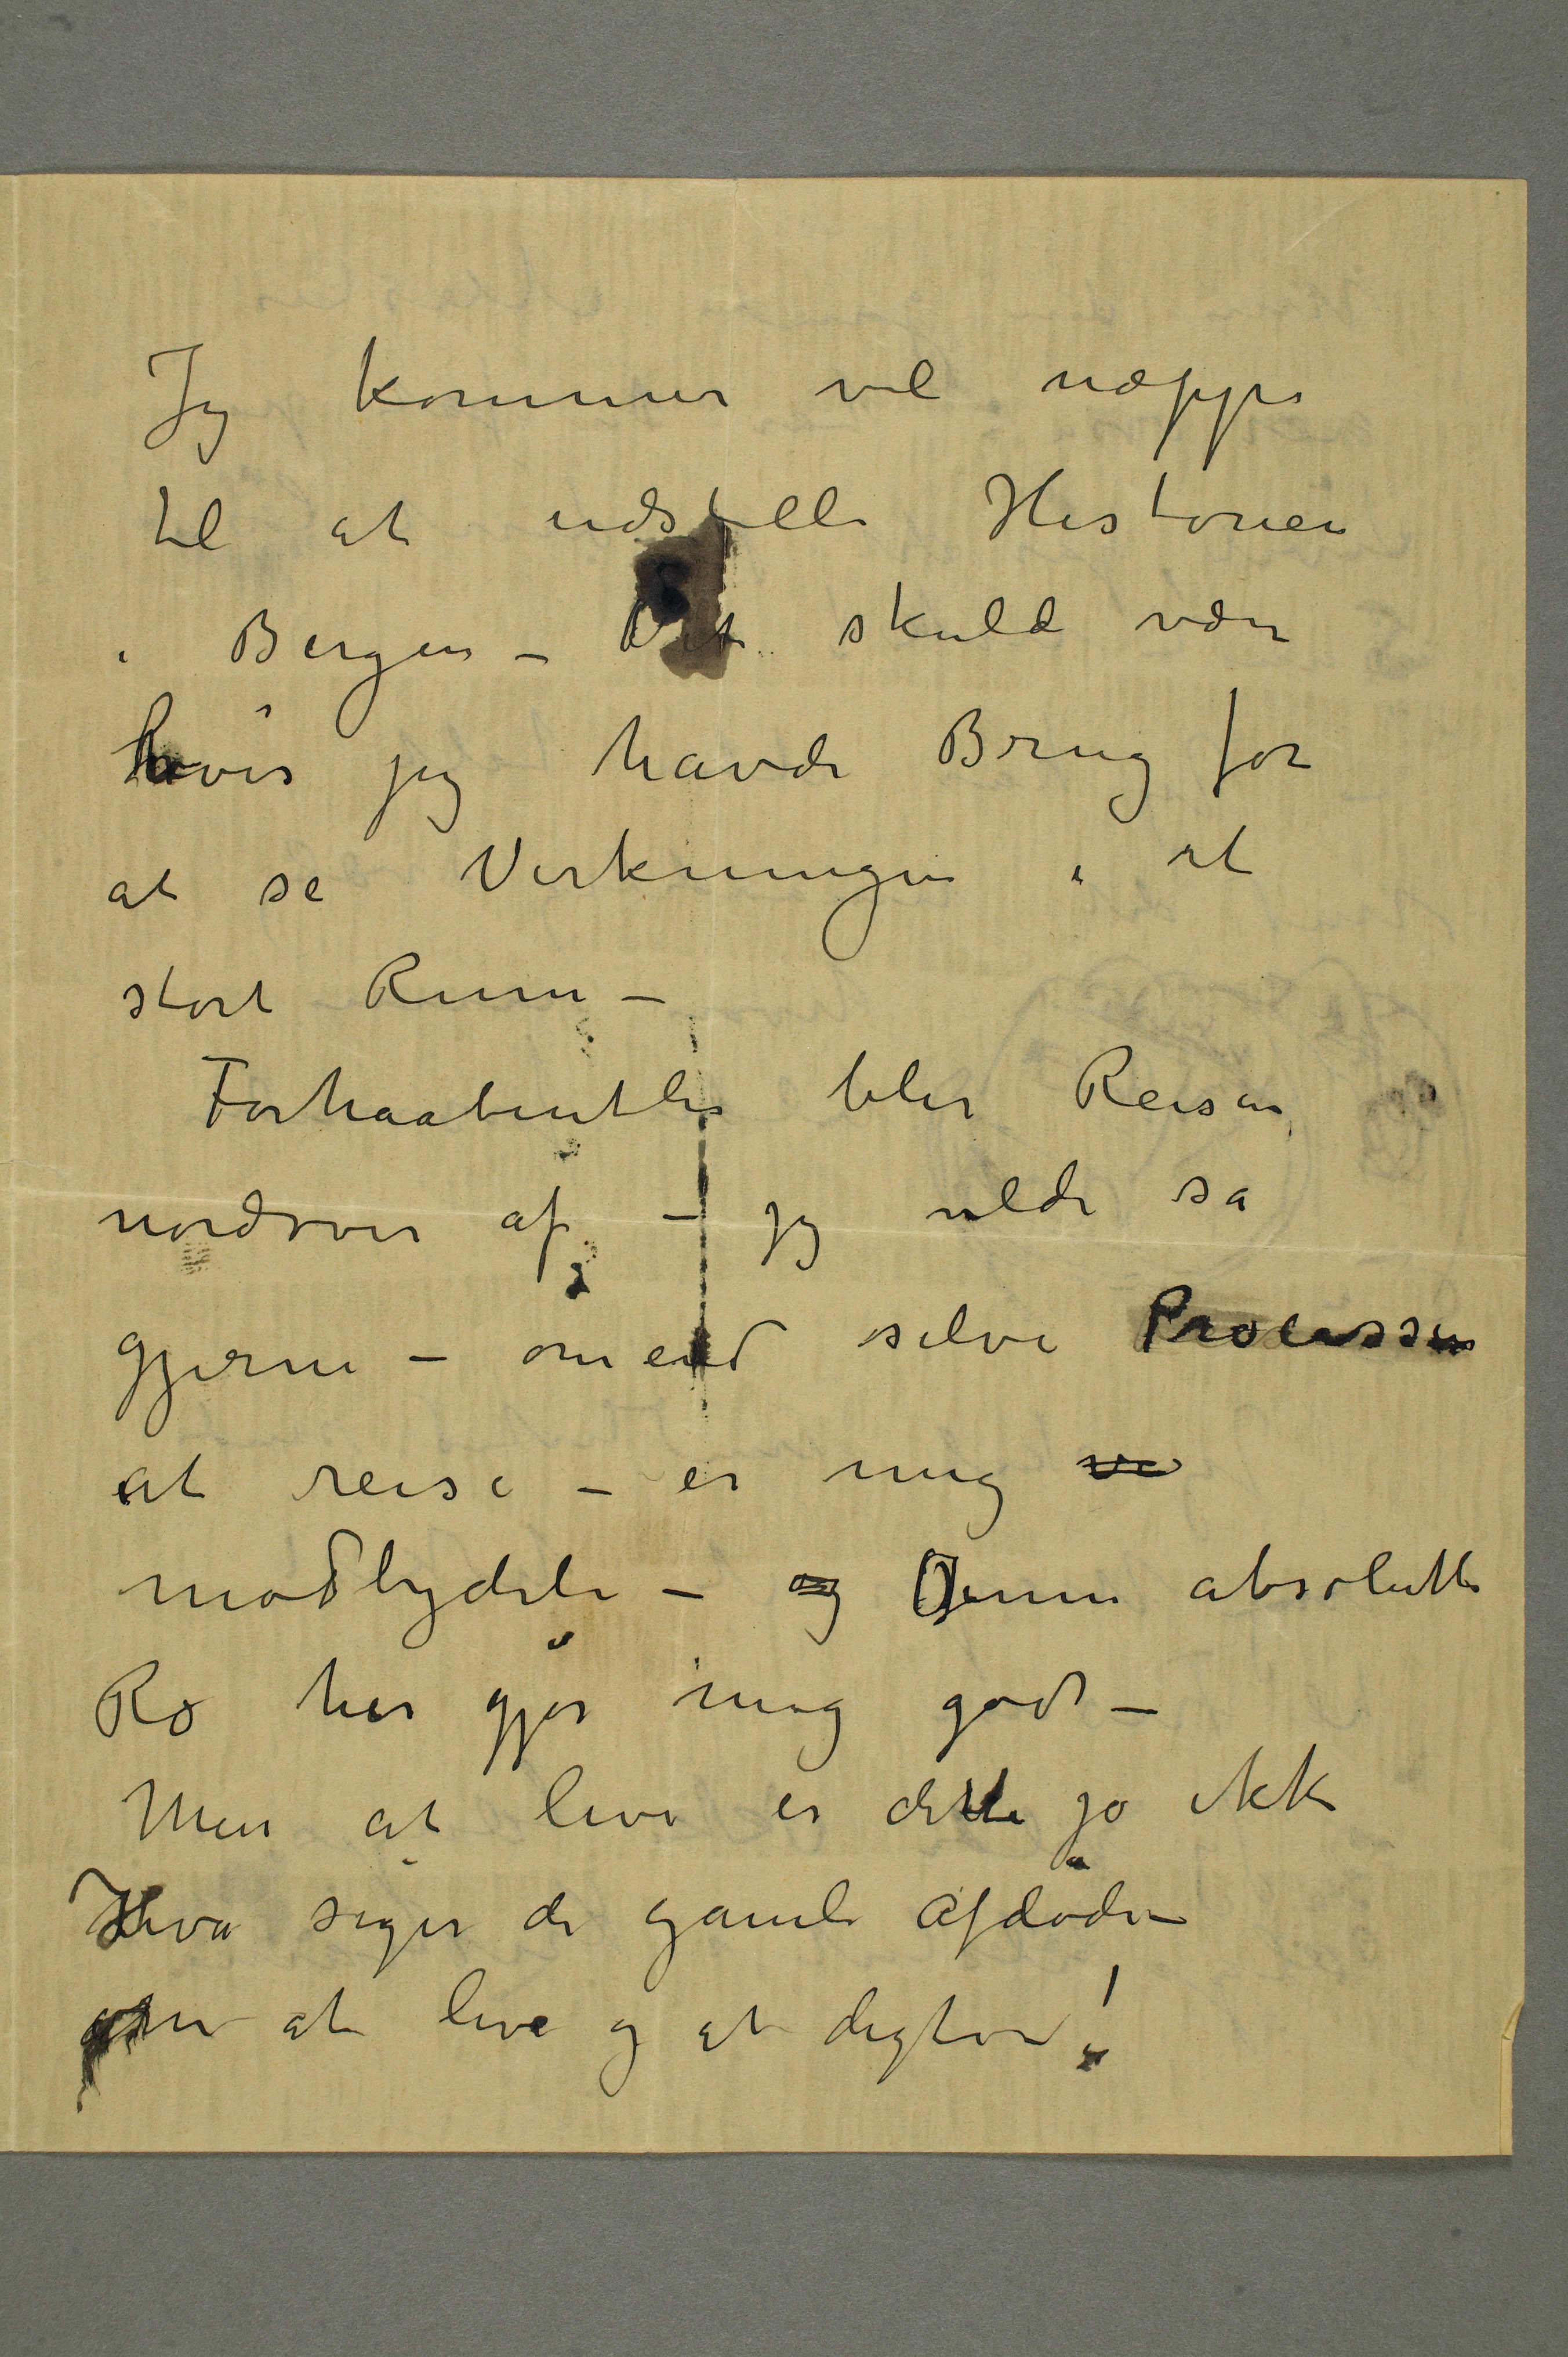 Jeg kommer vel næppe
til at udstille Historien
i Bergen – Det skuld være
hvis jeg havde Brug for
at se Virkningen i et
stort Rum –
Forhaabentlig blir Reisen
nordover af – jeg vilde så
gjerne – om end selve Processen
at reise – er mig ve
modbydelig – og Denne absolutte
Ro her gjør mig godt –
Men at leve er dette jo ikke
Hva siger de gamle Afdøde
om at leve og at digte!